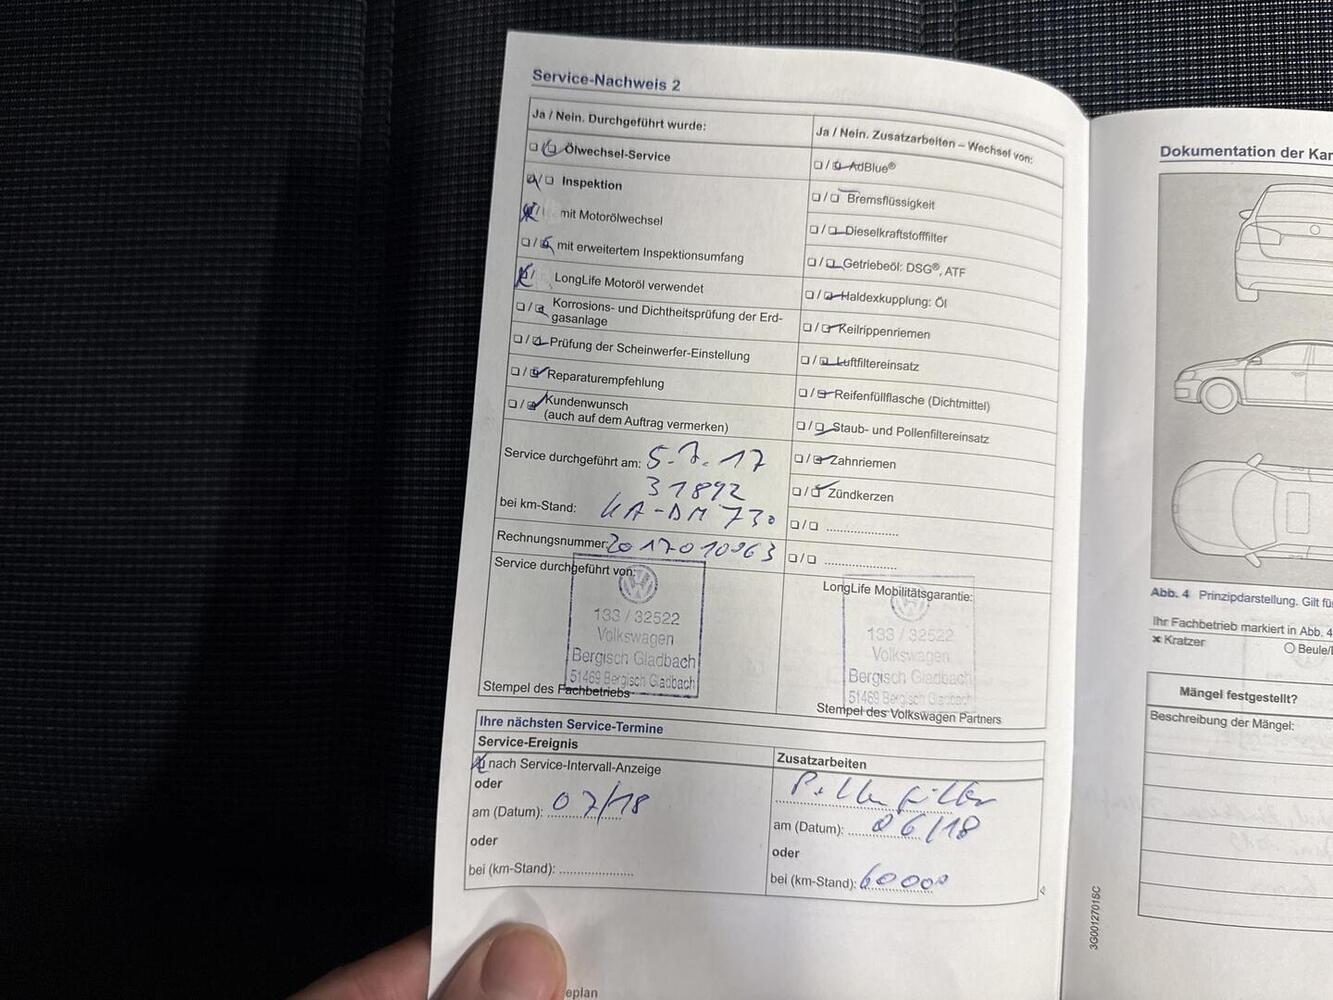 Service-Nachweis 2
Ja / Nein. Durchgeführt wurde:
Ölwechsel-Service
Inspektion
mit Motorölwechsel
mit erweitertem Inspektionsumfang
LongLife Motoröl verwendet
Korrosions- und Dichtheitsprüfung der Erd-
gasanlage
Prüfung der Scheinwerfer-Einstellung
Reparaturempfehlung
Kundenwunsch
(auch auf dem Auftrag vermerken)
Service durchgeführt am: 5.7.17
31892
bei km-Stand: KA-DM 730
Rechnungsnummer: 2017010063
Service durchgeführt von:
133 / 32522
Volkswagen
Bergisch Gladbach
51469 Bergisch Gladbach
Stempel des Fachbetriebs
Ja / Nein. Zusatzarbeiten – Wechsel von:
AdBlue®
Bremsflüssigkeit
Dieselkraftstofffilter
Getriebeöl: DSG®, ATF
Haldexkupplung: Öl
Keilrippenriemen
Luftfiltereinsatz
Reifenfüllflasche (Dichtmittel)
Staub- und Pollenfiltereinsatz
Zahnriemen
Zündkerzen
LongLife Mobilitätsgarantie:
133 / 32522
Volkswagen
Bergisch Gladbach
51469 Bergisch Gladbach
Stempel des Volkswagen Partners
Ihre nächsten Service-Termine
Service-Ereignis
nach Service-Intervall-Anzeige
oder
am (Datum): 07/18
oder
bei (km-Stand):
Zusatzarbeiten
Pollenfilter
am (Datum): 06/18
oder
bei (km-Stand): 60000
eplan
Dokumentation der Kar
Abb. 4 Prinzipdarstellung. Gilt fü
Ihr Fachbetrieb markiert in Abb. 4
Kratzer
Beule/
Mängel festgestellt?
Beschreibung der Mängel:
3G0012701SC